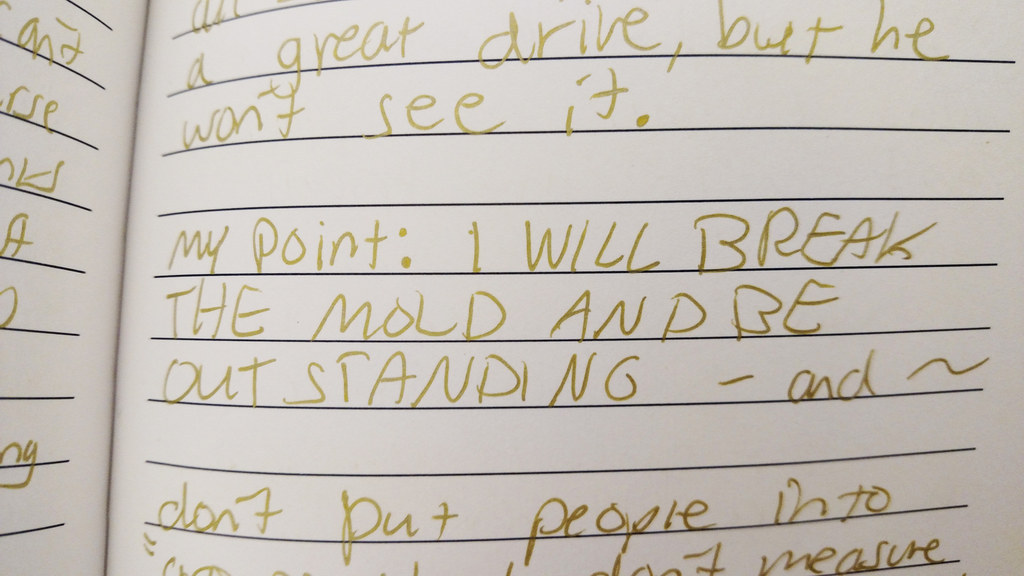 a great drive, but he
won't see it.
My point: I WILL BREAK
THE MOLD AND BE
OUTSTANDING - and ~
don't put people into
don't measure
ng
A